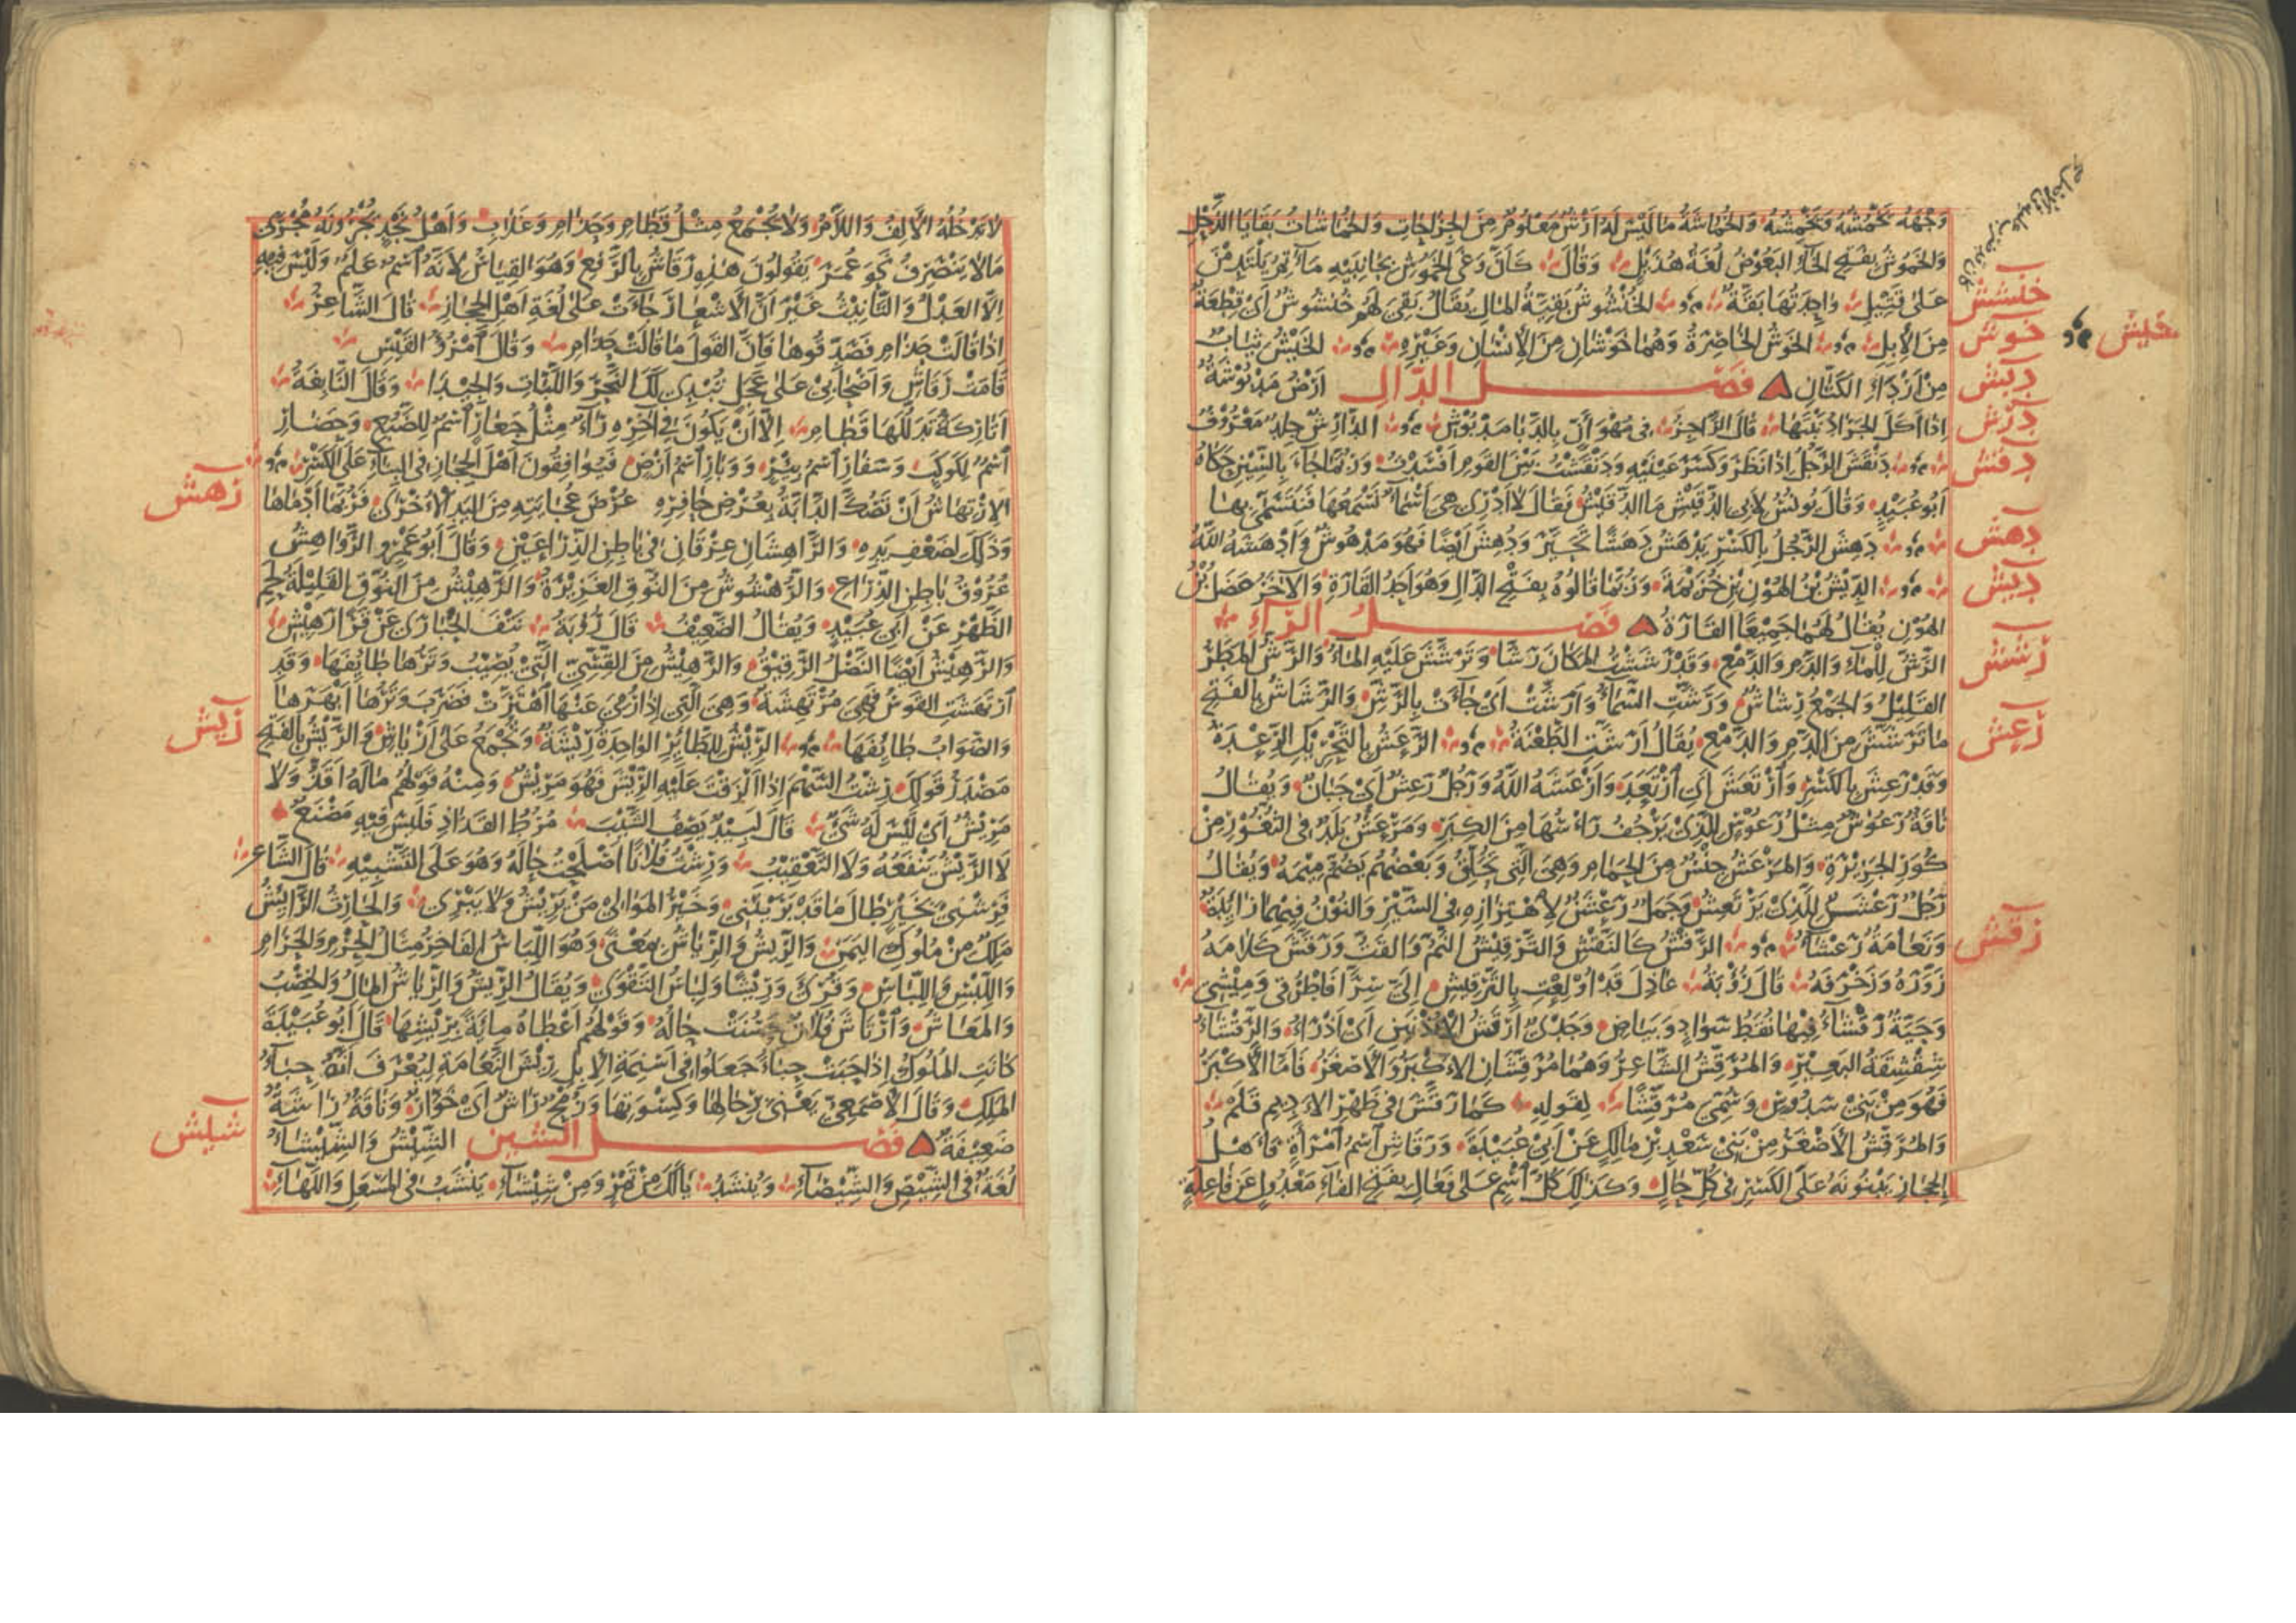 وَجْهَهُ يَخْمِشُهُ وَيَخْمُشُهُ وَالخُمَاشَةُ مَا لَيْسَ لَهُ اَرْشٌ مَعْلُومٌ مِنَ الجِرَاحَاتِ وَالخُمَاشَاتُ بَقَايَا الذَّحْلِ
وَالخَمُوشُ بِفَتْحِ الخَاءِ البَعُوضُ لُغَةُ هُذَيْلٍ وَقَالَ كَاَنَّ وَغَى الخَمُوشِ بِجَانِبَيْهِ مَآتِمُ يَلْتَدِمْنَ
عَلَى قَتِيلِ وَاحِدَتُهَا بَقَّةٌ الخُنْشُوشُ بَقِيَّةُ المَالِ يُقَالُ بَقِيَ لَهُمْ خُنْشُوشٌ اَيْ قِطْعَةٌ
خنشش
مِنَ الاِبِلِ الخَوْشُ الخَاصِرَةُ وَهُمَا خَوْشَانِ مِنَ الاِنْسَانِ وَغَيْرِهِ الخَيْشُ ثِيَابٌ
خوش
خيش
مِنْ اَرْدَاءِ الكَتَّانِ فَصْلُ الدَّالِ اَرْضٌ مَدْبُوشَةٌ
دبش
اِذَا اَكَلَ الجَرَادُ نَبْتَهَا قَالَ الرَّاجِزُ فِي مُهْوَأَنٍّ بِالدَّبَا مَدْبُوشِ الدَّارِشُ جِلْدٌ مَعْرُوفٌ
درش
دَنْقَشَ الرَّجُلُ اِذَا نَظَرَ وَكَسَرَ عَيْنَيْهِ وَدَنْقَشْتُ بَيْنَ القَوْمِ اَفْسَدْتُ وَرُبَّمَا جَاءَ بِالسِّينِ حَكَاهُ
دقش
اَبُو عُبَيْدٍ وَقَالَ يُونُسُ لِاَبِي الدُّقَيْشِ مَا الدُّقَيْشُ فَقَالَ لَا اَدْرِي هِيَ اَسْمَاءٌ نَسْمَعُهَا فَنَتَسَمَّى بِهَا
دَهِشَ الرَّجُلُ بِالكَسْرِ يَدْهَشُ دَهَشًا تَحَيَّرَ وَدُهِشَ اَيْضًا فَهُوَ مَدْهُوشٌ وَاَدْهَشَهُ اللهُ
دهش
الدِّيشُ بْنُ الهُونِ بْنِ خُزَيْمَةَ وَرُبَّمَا قَالُوهُ بِفَتْحِ الدَّالِ وَهُوَ اَحَدُ القَارَةِ وَالآخَرُ عَضَلُ بْنُ
ديش
الهُوْنِ يُقَالُ لَهُمَا جَمِيعًا القَارَةُ فَصْلُ الرَّاءِ
الرَّشُّ لِلْمَاءِ وَالدَّمِ وَالدَّمْعِ وَقَدْ رَشَشْتُ المَكَانَ رَشًّا وَتَرَشَّشَ عَلَيْهِ المَاءُ وَالرَّشُّ المَطَرُ
رشش
القَلِيلُ وَالجَمْعُ رِشَاشٌ وَرَشَّتِ السَّمَاءُ وَاَرَشَّتْ اَيْ جَاءَتْ بِالرَّشِّ وَالرَّشَاشُ بِالفَتْحِ
مَا تَرَشَّشَ مِنَ الدَّمِ وَالدَّمْعِ يُقَالُ اَرَشَّتِ الطَّعْنَةُ الرَّعَشُ بِالتَّحْرِيكِ الرِّعْدَةُ
رعش
وَقَدْ رَعِشَ بِالكَسْرِ وَاَرْتَعَشَ اَيْ اَرْتَعَدَ وَاَرْعَشَهُ اللهُ وَرَجُلٌ رَعِشٌ اَيْ جَبَانٌ وَيُقَالُ
نَاقَةٌ رَعُوشٌ مِثْلُ رَعُوسٍ لِلَّذِي يَرْجُفُ رَاْسُهَا مِنَ الكِبَرِ وَمَرْعَشُ بَلَدٌ فِي الثُّغُورِ مِنْ
كُوَرِ الجَزِيرَةِ وَالمَرْعَشُ جِنْسٌ مِنَ الحَمَامِ وَهِيَ الَّتِي تُحَلِّقُ وَبَعْضُهُمْ يَضُمُّ مِيْمَهُ وَيُقَالُ
رَجُلٌ رَعْشَنٌ لِلَّذِي يَرْتَعِشُ وَجَمَلٌ رَعْشَنٌ لِاهْتِزَازِهِ فِي السَّيْرِ وَالنُّوْنُ فِيهِمَا زَائِدَةٌ
وَنَعَامَةٌ رَعْشَاءُ الرَّقْشُ كَالنَّقْشِ وَالتَّرْقِيشُ النَّمُّ وَالقَتُّ وَرَقَّشَ كَلَامَهُ
رقش
زَوَّرَهُ وَزَخْرَفَهُ قَالَ رُؤْبَةُ عَاذِلَ قَدْ اُوْلِعْتِ بِالتَّرْقِيشِ اِلَيَّ سِرًّا فَاطْرُقِي وَمِيشِي
وَحَيَّةٌ رَقْشَاءُ فِيهَا نُقَطُ سَوَادٍ وَبَيَاضٍ وَجَدْيٌ اَرْقَشُ الاُذْنَيْنِ اَيْ اَذْرَاُ وَالرَّقْشَاءُ
شِقْشِقَةُ البَعِيْرِ وَالمُرَقِّشُ الشَّاعِرُ وَهُمَا مُرَقِّشَانِ الاَكْبَرُ وَالاَصْغَرُ فَاَمَّا الاَكْبَرُ
فَهُوَ مِنْ بَنِيْ سَدُوسٍ وَسُمِّيَ مُرَقِّشًا لِقَوْلِهِ كَمَا رَقَّشَ فِي ظَهْرِ الاَدِيمِ قَلَمْ
وَالمُرَقِّشُ الاَصْغَرُ مِنْ بَنِي سَعْدِ بْنِ مَالِكٍ عَنْ اَبِيْ عُبَيْدَةَ وَرَقَاشِ اسْمُ امْرَاَةٍ فَاَهْلُ
الحِجَازِ يَبْنُونَهُ عَلَى الكَسْرِ فِي كُلِّ حَالٍ وَكَذَلِكَ كُلُّ اسْمٍ عَلَى فَعَالِ بِفَتْحِ الفَاءِ مَعْدُولٍ عَنْ فَاعِلَةٍ
لَا تَدْخُلُهُ الاَلِفُ وَاللَّامُ وَلَا يُجْمَعُ مِثْلُ قَطَامِ وَحَذَامِ وَغَلَابِ وَاَهْلُ نَجْدٍ يُجْرُونَهُ مُجْرَى
مَا لَا يَنْصَرِفُ نَحْوَ عُمَرَ يَقُولُونَ هَذِهِ رَقَاشُ بِالرَّفْعِ وَهُوَ القِيَاسُ لِاَنَّهُ اسْمٌ عَلَمٌ وَلَيْسَ فِيهِ
اِلَّا العَدْلُ وَالتَّانِيْثُ غَيْرَ اَنَّ الاَشْعَارَ جَاءَتْ عَلَى لُغَةِ اَهْلِ الحِجَازِ قَالَ الشَّاعِرُ
اِذَا قَالَتْ حَذَامِ فَصَدِّقُوهَا فَاِنَّ القَوْلَ مَا قَالَتْ حَذَامِ وَقَالَ امْرُؤُ القَيْسِ
قَامَتْ رَقَاشِ وَاَصْحَابِيْ عَلَى عَجَلٍ تُبْدِي لَكَ النَّحْرَ وَاللَّبَّاتِ وَالجِيْدَا وَقَالَ النَّابِغَةُ
اَتَارِكَةٌ تَدَلُّلَهَا قَطَامِ اِلَّا اَنْ يَكُونَ فِي اٰخِرِهِ رَاءٌ مِثْلُ جَعَارِ اسْمٌ لِلضَّبُعِ وَحَضَارِ
اسْمٌ لِكَوكَبٍ وَسَفَارِ اسْمُ بِئْرٍ وَوَبَارِ اسْمُ اَرْضٍ فَيُوَافِقُونَ اَهْلَ الحِجَازِ فِي البِنَاءِ عَلَى الكَسْرِ
الاِرْتِهَاشُ اَنْ تَصُكَّ الدَّابَّةُ بِعُرْضِ حَافِرِهِ عُرْضَ عُجَايَتِهِ مِنَ اليَدِ الاُخْرَى فَرُبَّمَا اَدْمَاهَا
رهش
وَذَلِكَ لِضَعْفِ يَدِهِ وَالرَّاهِشَانِ عِرْقَانِ فِي بَاطِنِ الذِّرَاعَيْنِ وَقَالَ اَبُو عَمْرٍو الرَّوَاهِشُ
عُرُوْقُ بَاطِنِ الذِّرَاعِ وَالرُّهْشُوشُ مِنَ النُّوقِ الغَزِيْرَةُ وَالرَّهِيْشُ مِنَ النُّوقِ القَلِيلَةُ لَحْمِ
الظَّهْرِ عَنْ اَبِي عُبَيْدٍ وَيُقَالُ الضَّعِيْفُ قَالَ رُؤْبَةُ نَتْفَ الحُبَارَى عَنْ قَرًا رَهِيْشِ
وَالرَّهِيْشُ اَيْضًا النَّصْلُ الرَّقِيْقُ وَالرَّهِيْشُ مِنَ القِسِيِّ الَّتِيْ يُصِيْبُ وَتَرُهَا طَائِفَهَا وَقَدِ
ارْتَهَشَتِ القَوْسُ فَهِيَ مُرْتَهِشَةٌ وَهِيَ الَّتِي اِذَا رُمِيَ عَنْهَا اهْتَزَّتْ فَضَرَبَ وَتَرُهَا اَبْهَرَهَا
وَالصَّوَابُ طَائِفَهَا الرِّيْشُ لِلطَّائِرِ الوَاحِدَةُ رِيْشَةٌ وَيُجْمَعُ عَلَى اَرْيَاشٍ وَالرَّيْشُ بِالفَتْحِ
ريش
مَصْدَرُ قَوْلِكَ رِشْتُ السَّهْمَ اِذَا اَلْزَقْتَ عَلَيْهِ الرِّيْشَ فَهُوَ مَرِيْشٌ وَمِنْهُ قَوْلُهُمْ مَا لَهُ اَقَذُّ وَلَا
مَرِيْشٌ اَيْ لَيْسَ لَهُ شَيْءٌ قَالَ لَبِيْدٌ يَصِفُ الشَّيْبَ مُرُطُ القِذَاذِ فَلَيْسَ فِيْهِ مَصْنَعٌ
لَا الرِّيْشُ يَنْفَعُهُ وَلَا التَّعْقِيْبُ وَرِشْتُ فُلَانًا اَصْلَحْتُ حَالَهُ وَهُوَ عَلَى التَّشْبِيْهِ قَالَ الشَّاعِرُ
فَرِشْنِيْ بِخَيْرٍ طَالَ مَا قَدْ بَرَيْتَنِي وَخَيْرُ المَوَالِي مَنْ يَرِيْشُ وَلَا يَبْرِي وَالحَارِثُ الرَّائِشُ
مَلِكٌ مِنْ مُلُوكِ اليَمَنِ وَالرِّيشُ وَالرِّيَاشُ بِمَعْنًى وَهُوَ اللِّبَاسُ الفَاخِرُ مِثَالُ الحِرْمِ وَالحَرَامِ
وَاللِّبْسِ وَاللِّبَاسِ وَقُرِئَ وَرِيْشًا وَلِبَاسُ التَّقْوَى وَيُقَالُ الرِّيْشُ وَالرِّيَاشُ المَالُ وَالخِصْبُ
وَالمَعَاشُ وَارْتَاشَ فُلَانٌ حَسُنَتْ حَالُهُ وَقَوْلُهُمْ اَعْطَاهُ مِائَةً بِرِيْشِهَا قَالَ اَبُو عُبَيْدَةَ
كَانَتِ المُلُوكُ اِذَا حَبَتْ حِبَاءً جَعَلُوا فِي اَسْنِمَةِ الاِبِلِ رِيْشَ النَّعَامَةِ لِيُعْرَفَ اَنَّهُ حِبَاءُ
المَلِكِ وَقَالَ الاَصْمَعِيُّ يَعْنِيْ بِرِحَالِهَا وَكِسْوَتِهَا وَرُمْحٌ رَاشٌ اَيْ خَوَّارٌ وَنَاقَةٌ رَاشَةٌ
ضَعِيفَةٌ فَصْلُ الشِّينِ الشِّيْشُ وَالشِّيْشَاءُ
شيش
لُغَةٌ فِي الشِّيْصِ وَالشِّيْصَاءِ وَيُنْشَدُ يَا لَكَ مِنْ تَمْرٍ وَمِنْ شِيْشَاءِ يَنْشَبُ فِي المَسْعَلِ وَاللَّهَاءِ